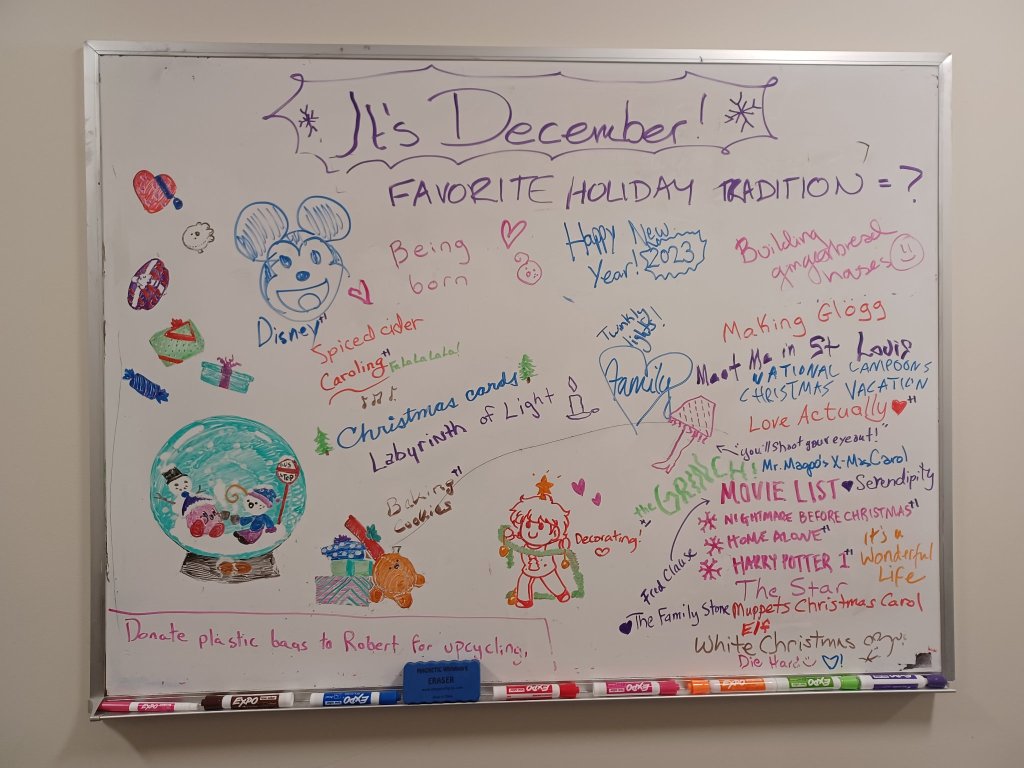 It's December!
FAVORITE HOLIDAY TRADITION = ?
Being
born
Happy New
Year! 2023
Building
gingerbread
houses
Disney
Spiced cider
Caroling
FaLaLaLaLa!
Christmas cards
Labyrinth of Light
Twinkly
lights!
Family
Making Glögg
Meet Me in St Louis
NATIONAL LAMPOONS
CHRISTMAS VACATION
Love Actually
"you'll shoot your eye out!"
the GRINCH!
Mr. Magoo's X-Mas Carol
MOVIE LIST
Serendipity
NIGHTMARE BEFORE CHRISTMAS
HOME ALONE
HARRY POTTER 1
It's a
Wonderful
Life
Fred Clause
The Star
The Family Stone
Muppets Christmas Carol
Elf
White Christmas
Die Hard
!
Baking
Cookies
Decorating!
BUS
STOP
Donate plastic bags to Robert for upcycling.
MAGNETIC WHITEBOARD
ERASER
EXPO
EXPO
EXPO
EXPO
EXPO
EXPO
EXPO
EXPO